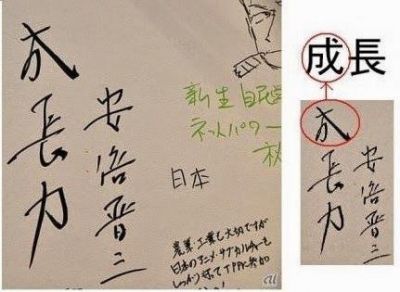 成長力
安倍晋三
新生自民党
ネットパワー
日本
農業・工業も大切ですが
日本のアニメ・サブカルチャーも
しっかり守ってTPPに参加
成長
成長力
安倍晋三